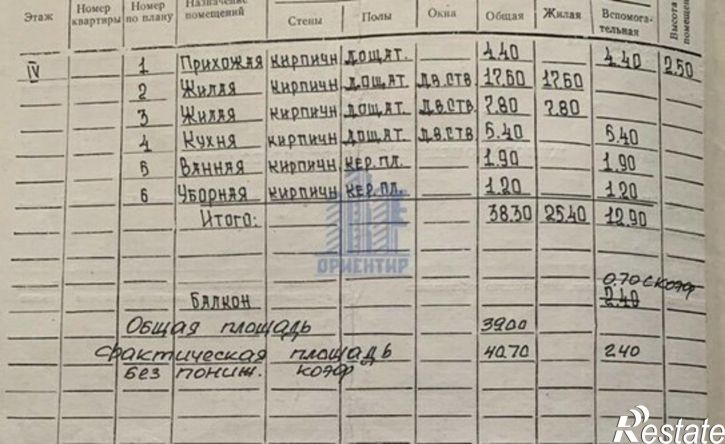 Этаж Номер квартиры Номер по плану Назначение помещений Стены Полы Окна Общая Жилая Вспомога-тельная Высота помещен
IV 1 Прихожая кирпичн дощат. 4.40 4.40 2.50
2 Жилая кирпичн дощат дв.ств. 17.60 17.60
3 Жилая кирпичн дощат. дв.ств. 7.80 7.80
4 Кухня кирпичн дощат дв.ств 5.40 5.40
5 Ванная кирпичн кер.пл. 1.90 1.90
6 Уборная кирпичн кер.пл. 1.20 1.20
Итого: 38.30 25.40 12.90
ОРИЕНТИР
0.70 с коэф
Балкон 2.40
Общая площадь 39.00
фактическая площадь 40.70 2.40
без пониж. коэф
Restate